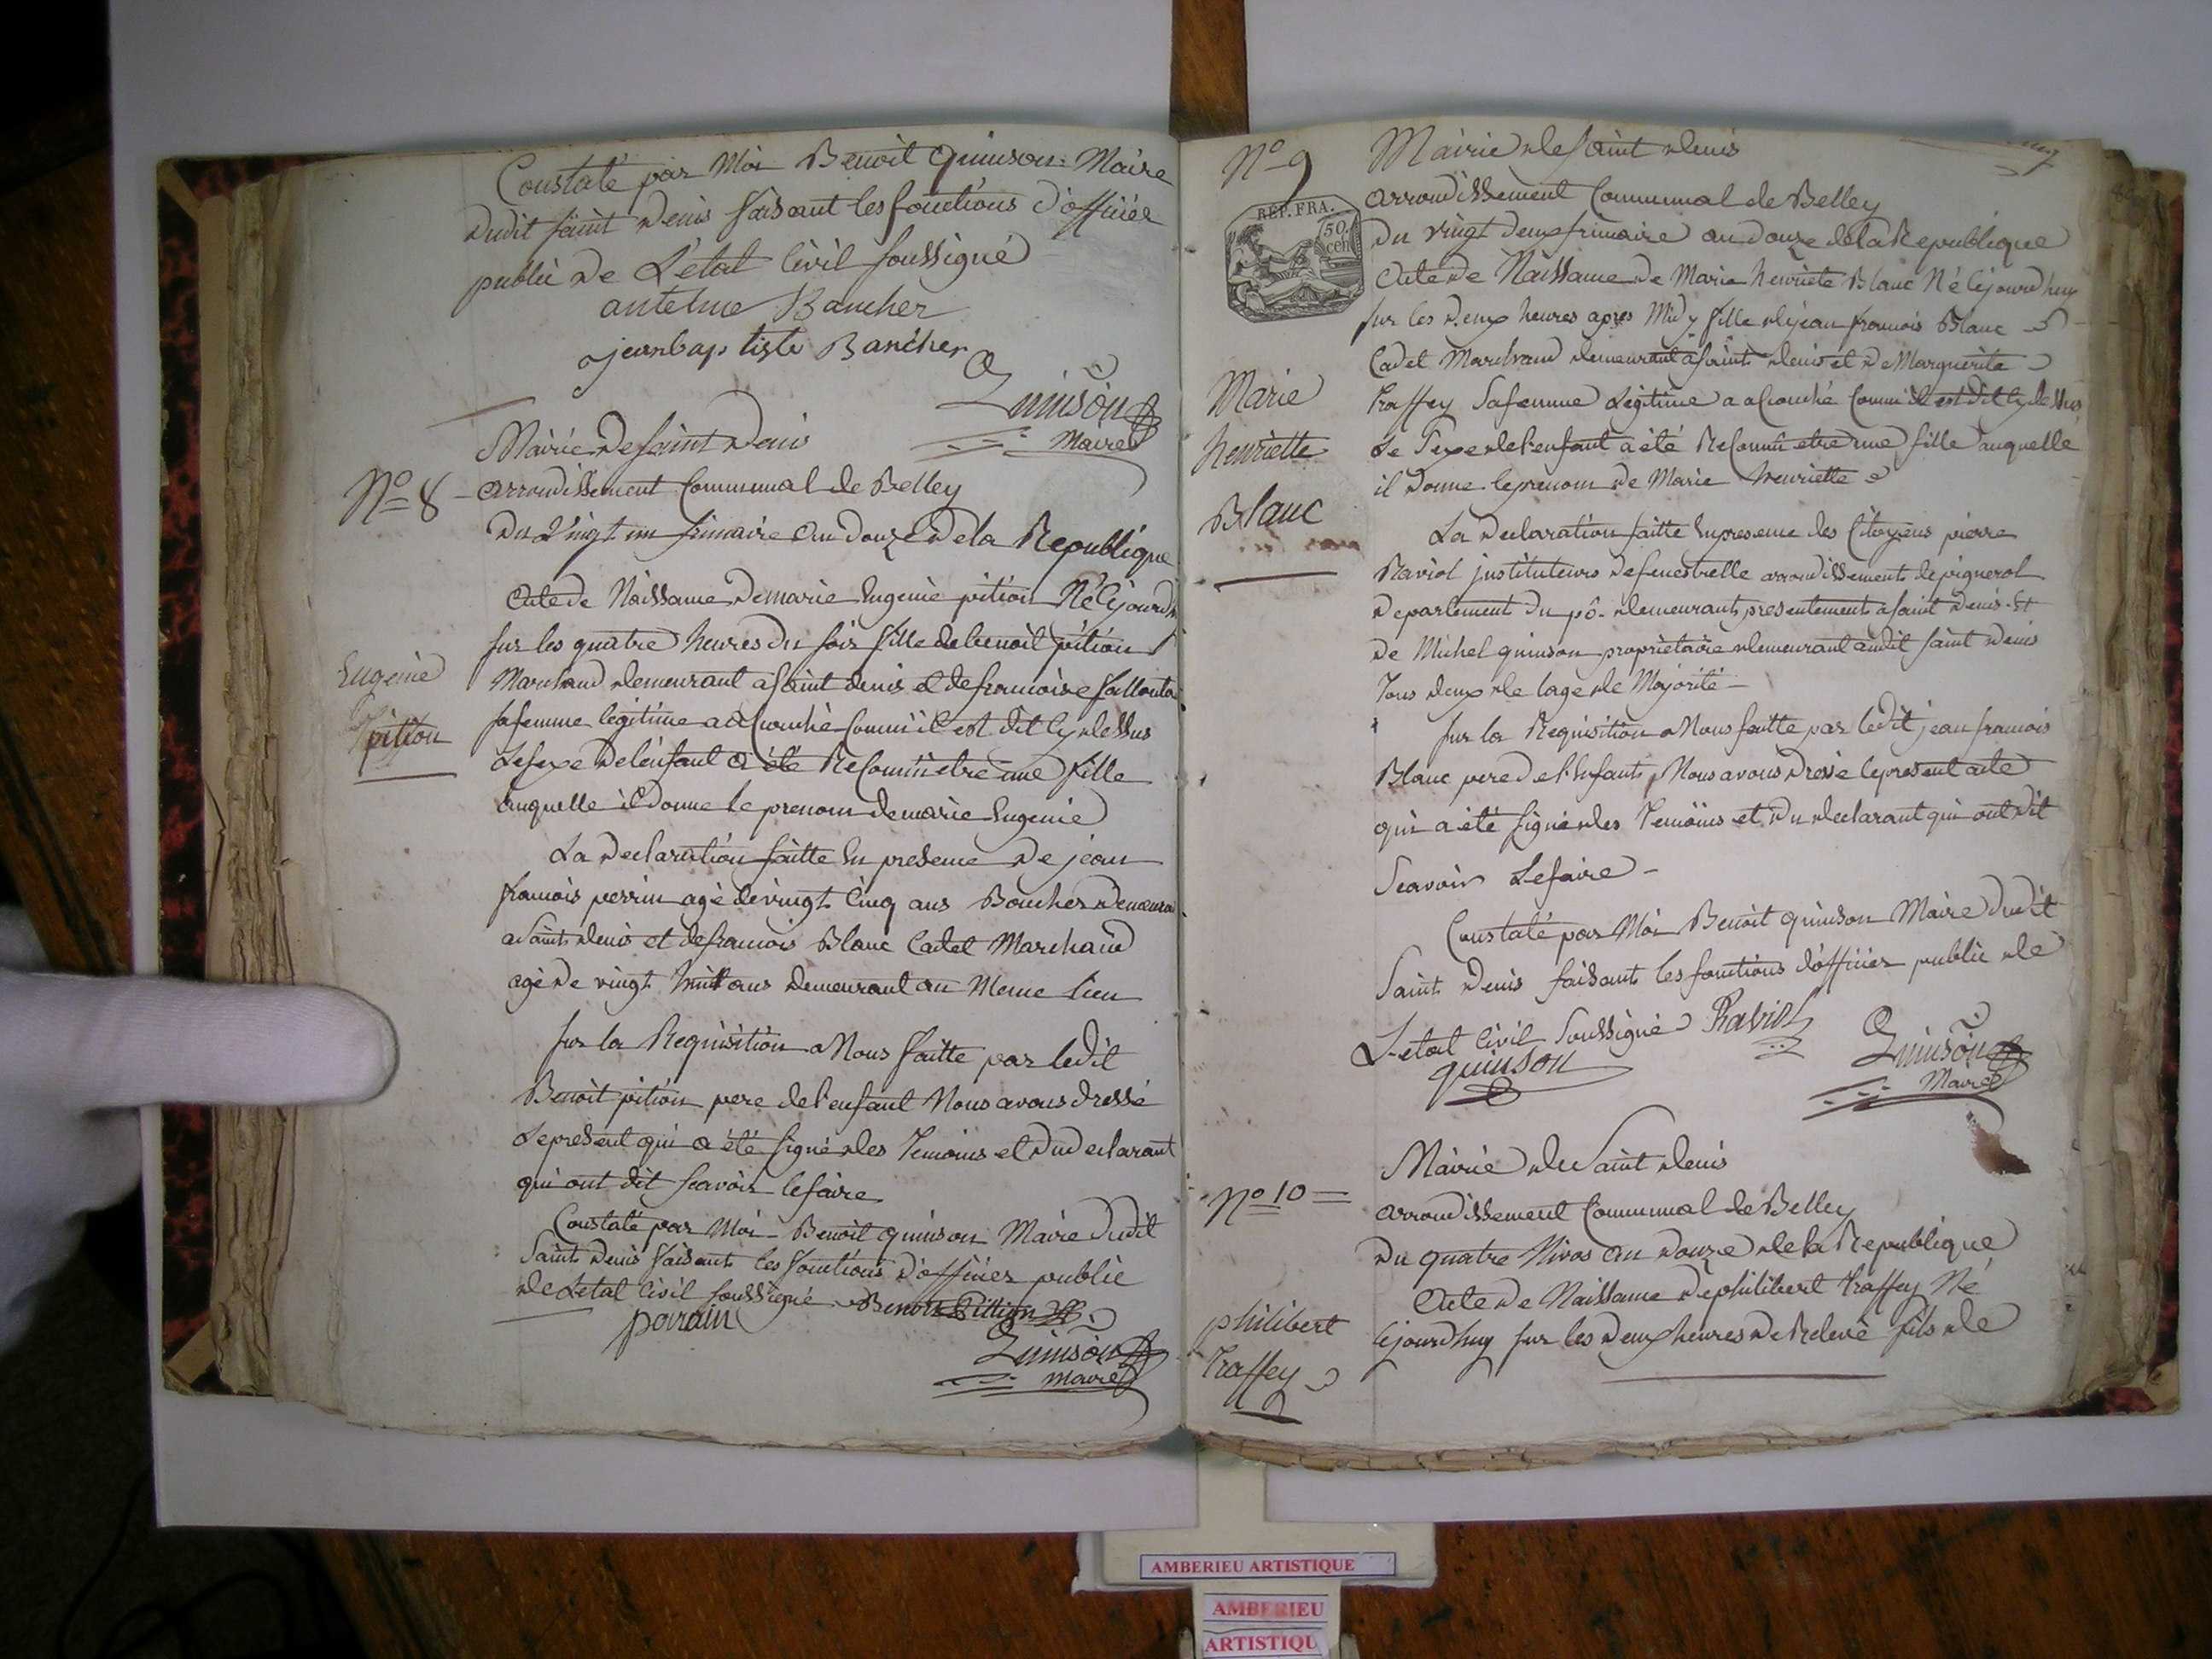 Constaté par Moi Benoit quinson Maire
dudit saint denis faisant les fonctions d'officier
public de L'état Civil soussigné
antelme Bancher
jean baptiste Bancher
Quinson
Maire
Mairie de saint denis
No 8 - arrondissement Communal de Belley
Du Vingt un frimaire an douze de la Republique
acte de Naissance de marie Eugenie pition Né cejourd'h
sur les quatre heures du soir fille de benoit pition
Eugenie
Marchand demeurant a saint denis et de francoise
pition
sa femme legitime accouché comm'il est dit cy dessus
Le sexe de l'enfant a été Reconnû etre une fille
auquelle il donne le prenom de marie Eugenie
La declaration faitte En presence de jean
francois perrin agé de vingt Cinq ans Boucher demeuran
a saint denis et de francois Blanc Cadet Marchand
agé de vingt huit ans demeurant au Meme lieu
sur la Requisition a Nous faitte par ledit
Benoit pition pere de l'enfant Nous avons dressé
Le present qui a été signé des Temoins et du declarant
qui ont dit scavoir le faire
Constaté par Moi Benoit quinson Maire dudit
Saint denis faisant les fonctions d'officier public
de L'etat Civil soussigné Benoit Pittion
Quinson
maire
No 9
Mairie de saint denis
arrondissement Communal de Belley
REP. FRA.
50 cen
Du vingt deux frimaire an douze de la Republique
acte de Naissance de Marie henriete Blanc Né cejourd'huy
sur les deux heures apres Midy fille de jean francois Blanc
Cadet Marchand demeurant a saint denis et de Marguerite
Marie
henriette
Blanc
Traffey sa femme Legitime a accouché comm'il est dit cy dessus
Le sexe de l'enfant a été Reconnû etre une fille auquelle
il donne le prenom de Marie henriette
La declaration faitte En presence des Citoyens pierre
Raviol instituteurs de fenestrelle arrondissement de pignerol
departement du pô demeurant presentement a saint denis Et
de Michel quinson proprietaire demeurant audit saint denis
Tous deux de lage de Majorité
sur la Requisition a Nous faitte par ledit jean francois
Blanc pere de l'Enfant, Nous avons dressé le present acte
qui a été signé des Temoins et du declarant qui ont dit
Scavoir Le faire
Constaté par Moi Benoit quinson Maire dudit
Saint denis faisant les fonctions d'officier public de
L'etat Civil Soussigné Raviol
quinson
Quinson
Maire
Mairie de Saint denis
No 10
arrondissement Communal de Belley
Du quatre Nivos an douze de la Republique
acte de Naissance de philibert Traffey Né
philibert
Traffey
cejourd'huy sur les deux heures de Relevé fils de
AMBERIEU ARTISTIQUE
AMBERIEU
ARTISTIQU